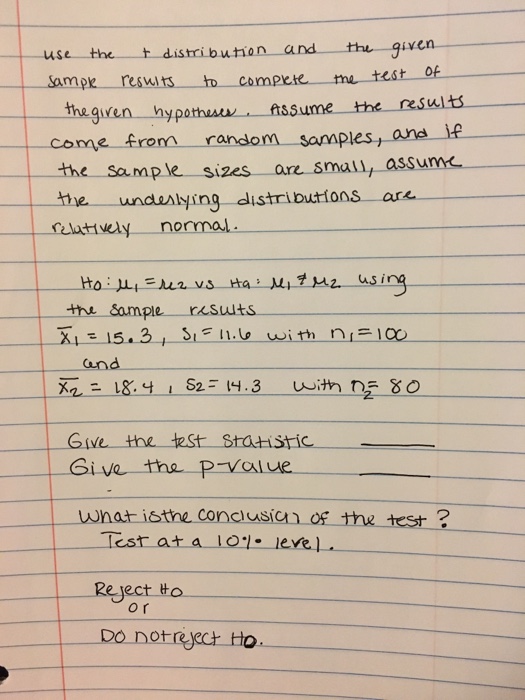 use the t distribution and the given
sample results to complete the test of
the given hypotheses. Assume the results
come from random samples, and if
the sample sizes are small, assume
the underlying distributions are
relatively normal.
Ho: μ₁ = μ₂ vs Ha: μ₁ ≠ μ₂ using
the sample results
x̄₁ = 15.3, S₁ = 11.6 with n₁ = 100
and
x̄₂ = 18.4, S₂ = 14.3 with n₂ = 80
Give the test statistic ____
Give the p-value ____
What is the conclusion of the test?
Test at a 10% level.
Reject Ho
or
Do not reject Ho.